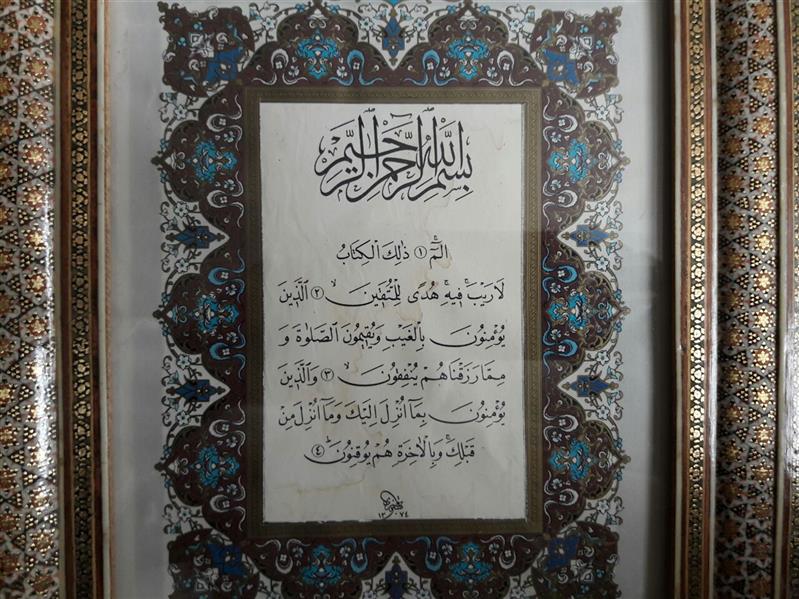 بِسْمِ اللهِ الرَّحْمٰنِ الرَّحِيْمِ
الٓمٓ ۚ ﴿١﴾ ذٰلِكَ الْكِتَابُ
لَا رَيْبَ ۛ فِيهِ ۛ هُدًى لِلْمُتَّقِينَ ۙ ﴿٢﴾ اَلَّذِينَ
يُؤْمِنُونَ بِالْغَيْبِ وَيُقِيمُونَ الصَّلٰوةَ وَ
مِمَّا رَزَقْنَاهُمْ يُنْفِقُونَ ۙ ﴿٣﴾ وَالَّذِينَ
يُؤْمِنُونَ بِمَٓا اُنْزِلَ اِلَيْكَ وَمَٓا اُنْزِلَ مِنْ
قَبْلِكَ ۚ وَبِالْاٰخِرَةِ هُمْ يُوقِنُونَ ۜ ﴿٤﴾
١٣٧٤